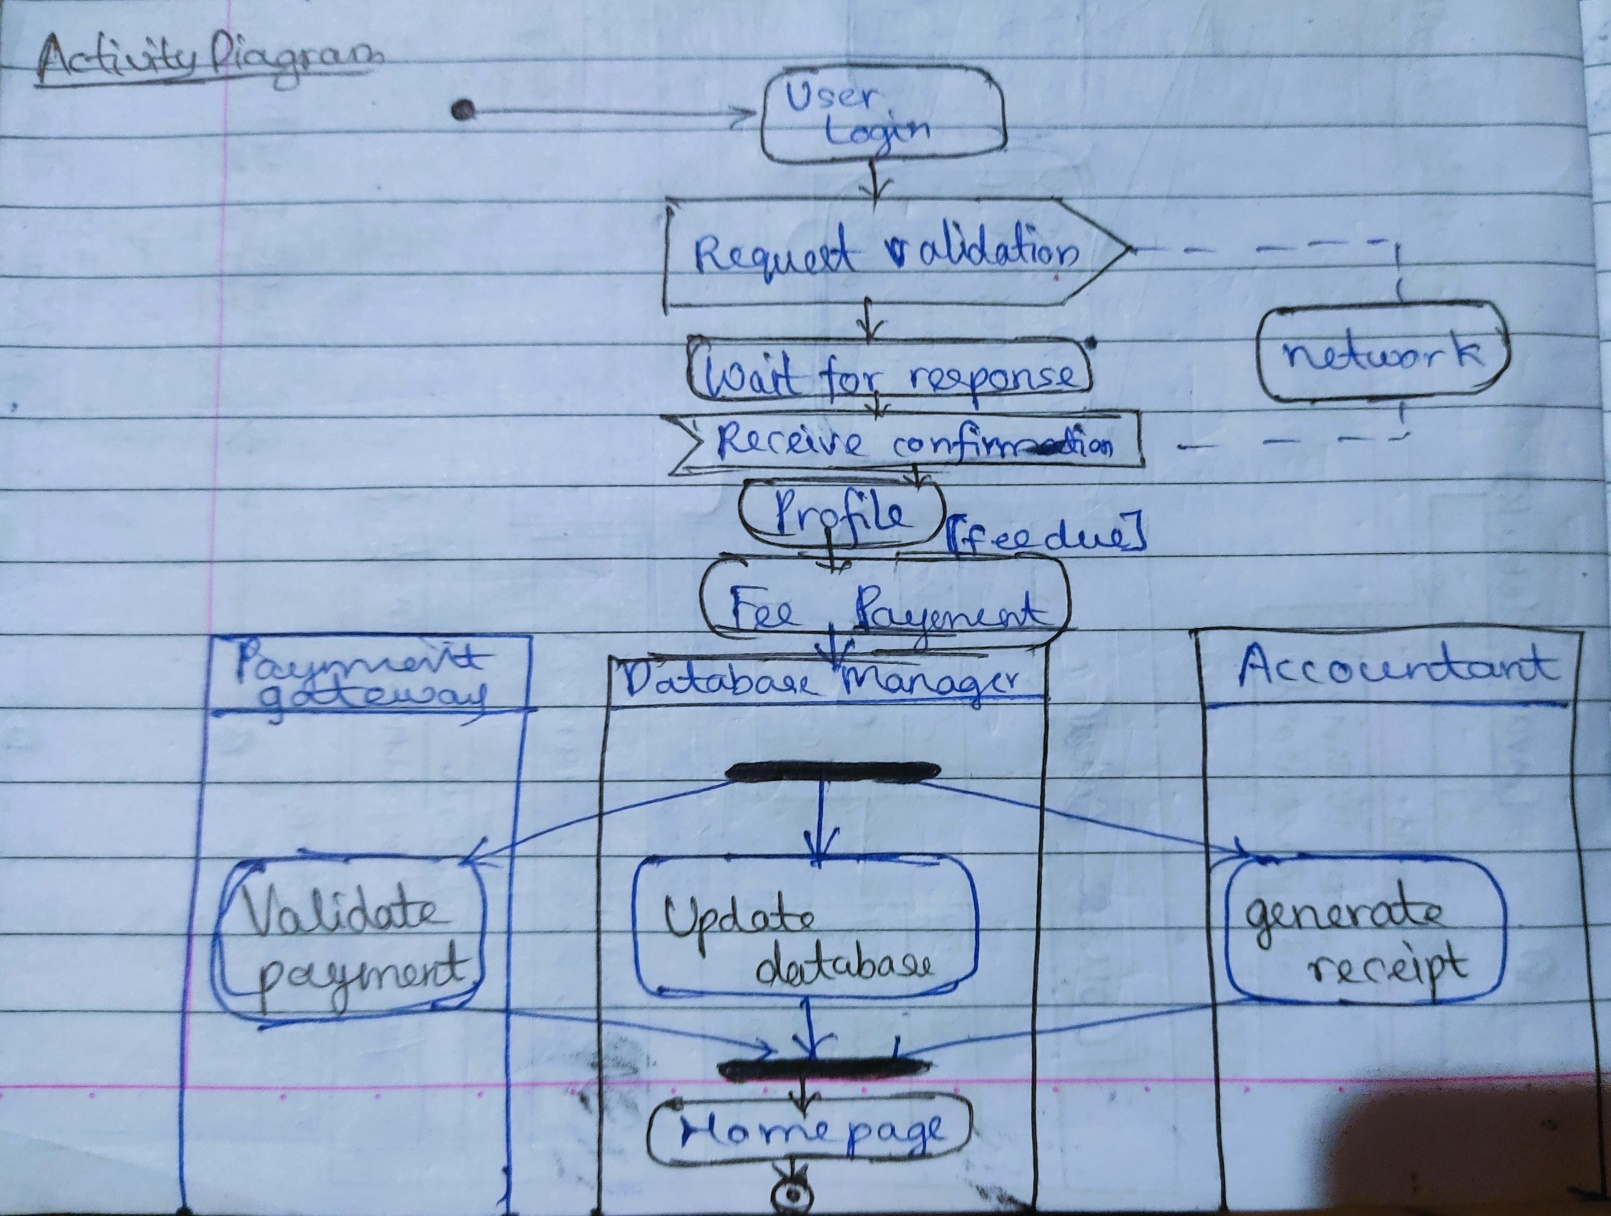 Activity Diagram
User
Login
Request validation
network
Wait for response
Receive confirmation
Profile
[fee due]
Fee Payement
Payment
gateway
Database Manager
Accountant
Validate
payment
Update
database
generate
receipt
Home page